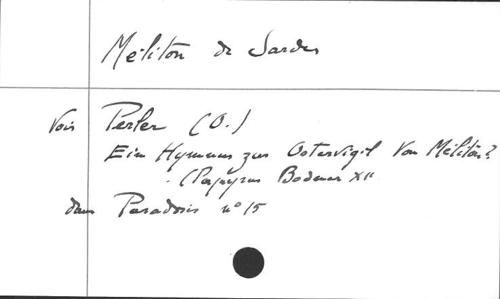 Méliton de Sardes
Voir Perler (O.)
Ein Hymnus zur Ostervigil von Méliton?
(Papyrus Bodmer XII
dans Paradosis n° 15